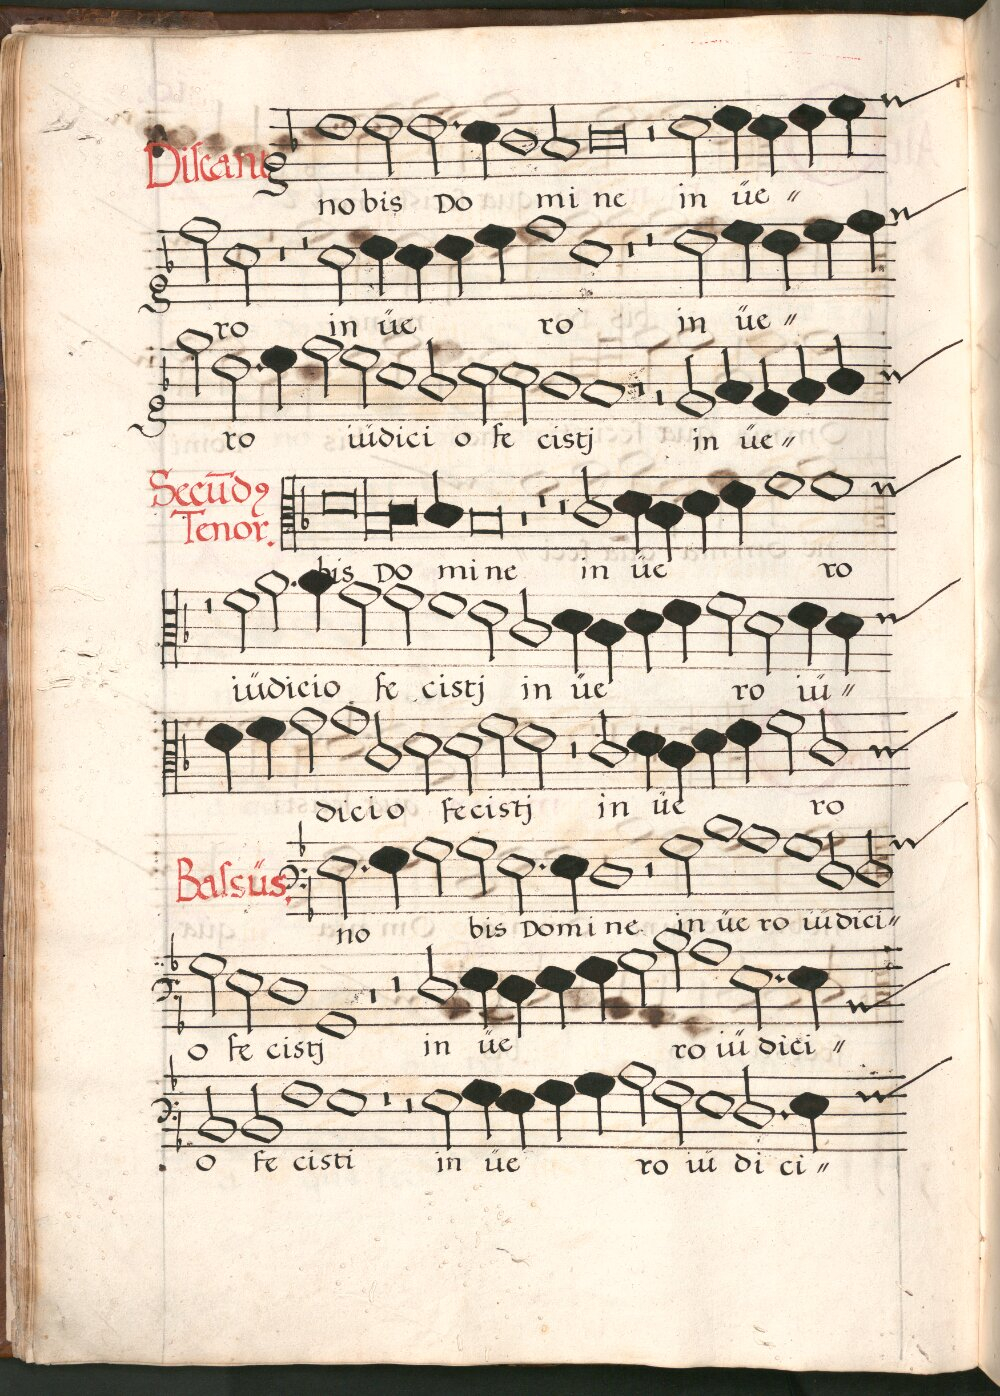 Discant
nobis Do mi ne in üe "
ro in üe ro in üe "
ro iüdici o fe cistj in üe "
Secūdꝯ
Tenor.
bis Do mi ne in üe ro
iüdicio fe cistj in üe ro iü "
dicio fecistj in üe ro
Bassüs.
no bis Domi ne in üe ro iüdici "
o fe cistj in üe ro iü dici "
o fe cisti in üe ro iü di ci "